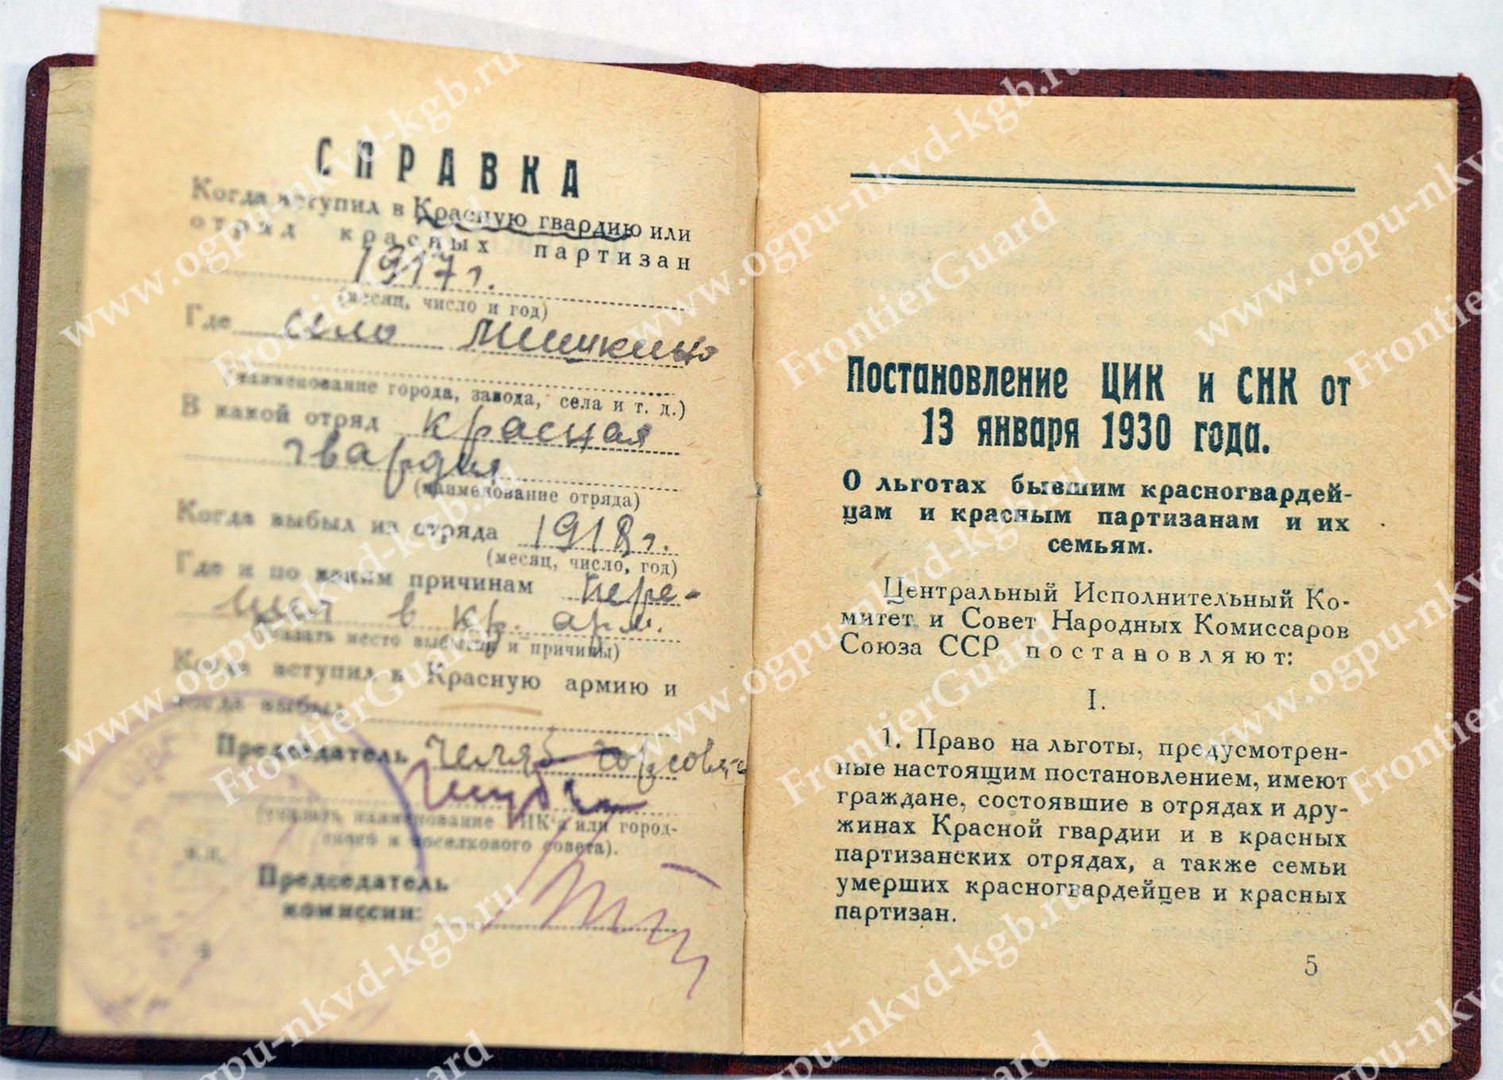 СПРАВКА
Когда вступил в Красную гвардию или
отряд красных партизан
1917 г.
(месяц, число и год)
Где село Мишкино
(наименование города, завода, села и т. д.)
В какой отряд красная
гвардия
(наименование отряда)
Когда выбыл из отряда 1918 г.
(месяц, число, год)
Где и по каким причинам пере-
шел в кр. арм.
(указать место выбытия и причины)
Когда вступил в Красную армию и
когда выбыл
Председатель Челяб горсовета
(указать наименование или город-
ского и поселкового совета).
м.п.
Председатель
комиссии:
4
Постановление ЦИК и СНК от
13 января 1930 года.
О льготах бывшим красногвардей-
цам и красным партизанам и их
семьям.
Центральный Исполнительный Ко-
митет и Совет Народных Комиссаров
Союза ССР постановляют:
I.
1. Право на льготы, предусмотрен-
ные настоящим постановлением, имеют
граждане, состоявшие в отрядах и дру-
жинах Красной гвардии и в красных
партизанских отрядах, а также семьи
умерших красногвардейцев и красных
партизан.
5
www.ogpu-nkvd-kgb.ru
FrontierGuard